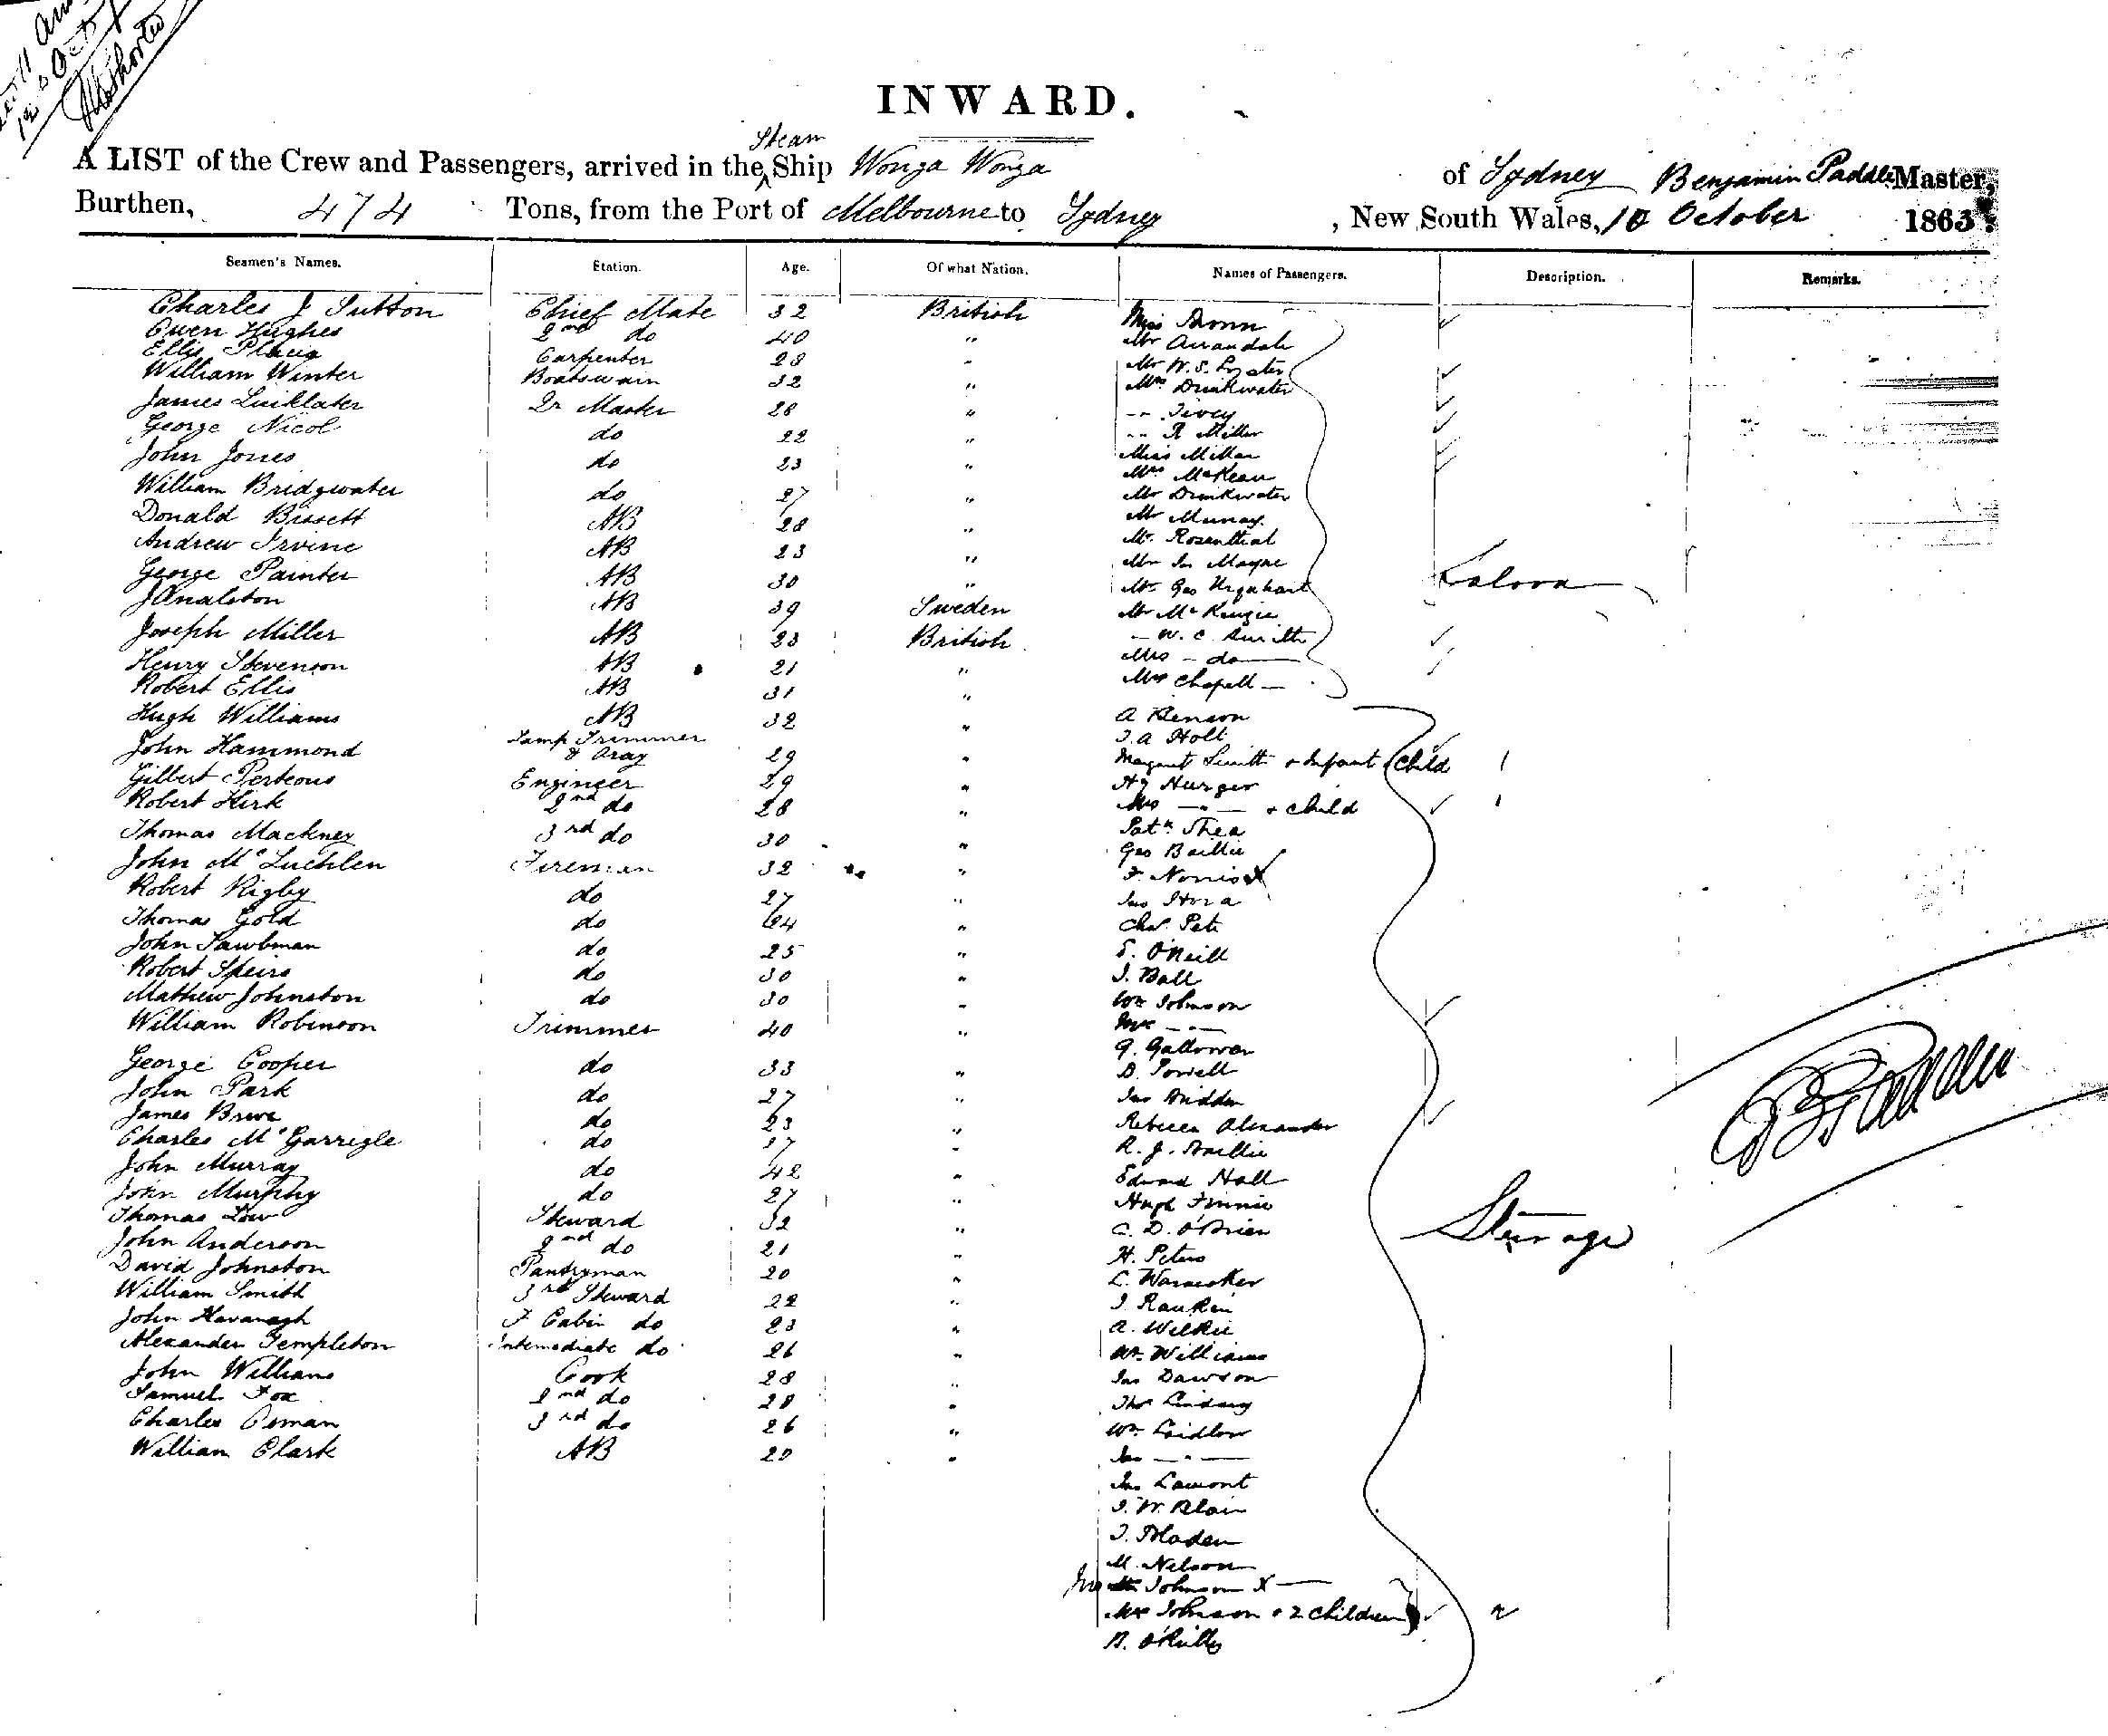 INWARD.
Steam
A LIST of the Crew and Passengers, arrived in the ^ Ship Wonga Wonga of Sydney Benjamin Paddle Master,
Burthen, 474 Tons, from the Port of Melbourne to Sydney, New South Wales, 10 October 1863.
Seamen's Names. Station. Age. Of what Nation. Names of Passengers. Description. Remarks.
Charles J Sutton Chief Mate 32 British Miss
Owen Hughes 2nd do 40 " Mr Arrandale
Ellis Carpenter 28 " Mr W. S. Lyster
William Winter Boatswain 32 " Mrs Drinkwater
James Qr Master 28 " -- Tivey
George Nicol do 22 " -- R Miller
John Jones do 23 " Miss Miller
William Bridgwater do 27 " Mrs McKean
Donald Bissett AB 28 " Mr Drinkwater
Andrew Irvine AB 23 " Mr Murray
George Painter AB 30 " Mr Rosenthal
AB 39 Sweden Mr Jn Mayne
Joseph Miller AB 23 British Mr Geo Urquhart
Henry Stevenson AB 21 " Mr McKenzie
Robert Ellis AB 31 " - W. C. Smith
Hugh Williams AB 32 " Mrs - do -
John Hammond Lamp Trimmer 29 " Mrs Chapell -
Saloon
Gilbert Porteous Engineer 29 " A Benson
Robert Kirk 2nd do 28 " J. A Holt
Thomas Mackney 3rd do 30 " Margaret Smith + Infant Child 1
John McLuchlen Fireman 32 " Hy Hurger
Robert Rigby do 27 " Mrs -"- + child 1
Thomas Gold do 24 " Patk Shea
John Sawbman do 25 " Geo Baillie
Robert Speirs do 30 " F. Norris X
Mathew Johnston do 30 " Jas
William Robinson Trimmer 40 " Chas
George Cooper do 33 " E. O'Neill
John Park do 27 " J. Ball
James do 23 " Wm Johnson
Charles McGarrigle do 37 " Mrs -"-
John Murray do 42 " G.
John Murphy do 27 " D. Powell
Thomas Low Steward 32 " Jas
John Anderson 2nd do 21 " Rebecca Alexander
David Johnston Pantryman 20 " R. J. Baillie
William Smith 3rd Steward 22 " Edward Hall
John Kavanagh F Cabin do 23 " Hugh Finnie
Alexander Templeton Intermediate do 26 " C. D. O'Brien
John Williams Cook 28 " H. Peters
Samuel Fox 2nd do 28 " C.
Charles Osman 3rd do 26 " J. Rankin
William Clark AB 20 " A. Wilkie
Wm Williams
Jas Dawson
Thos Lindsay
Wm Laidlow
Jas -"-
Jas Lamont
J. W. Blair
J. Bladen
M. Nelson
Jno Johnson X
Mrs Johnson + 2 children 2
B. O'Reilly
Steerage
B Paddle